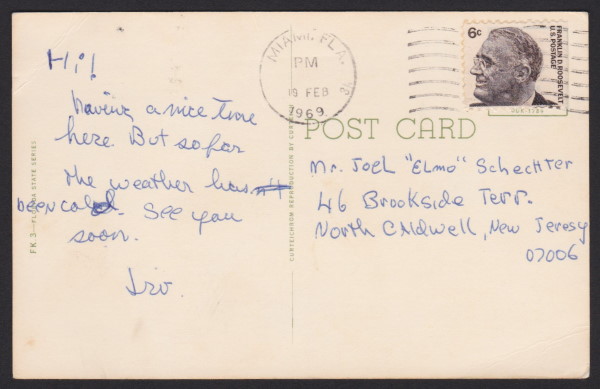 Hi!
having a nice time
here. But so far
the weather has
been cold. See you
soon.
Irv.
MIAMI, FLA.
PM
19 FEB
1969
6c
FRANKLIN D. ROOSEVELT
U.S. POSTAGE
POST CARD
Mr. Joel "Elmo" Schechter
46 Brookside Terr.
North Caldwell, New Jeresy
07006
FK 3—FLORIDA STATE SERIES
CURTEICHROM REPRODUCTION BY CURTEICH